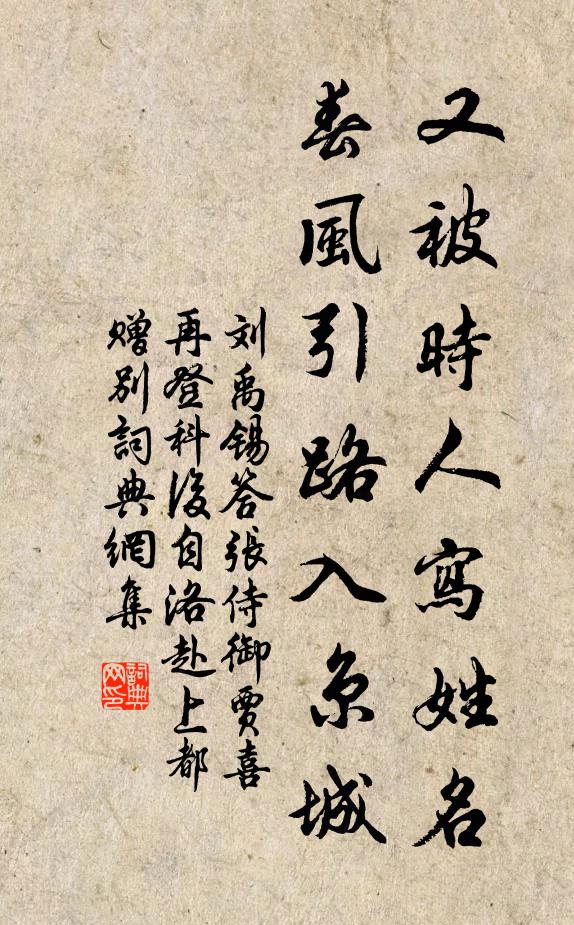 又被時人寫姓名
春風引路入京城
刘禹锡答張侍御賈喜
再登科後自洛赴上都
赠别詞典網集
詞典网印